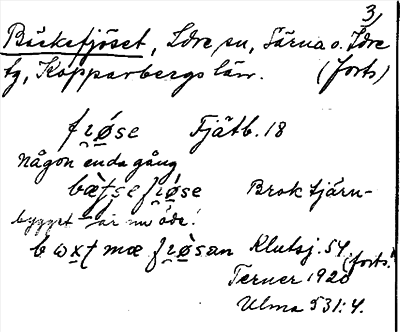 3)
Bäckefjöset, Idre sn, Särna o. Idre
tg, Kopparbergs län. (forts)
fjö̀se Fjätb. 18
Någon enda gång
Broktjärn-
bygget – är nu öde!
Klutsj. 54 (forts.)
Terner 1920
Ulma 531:4.